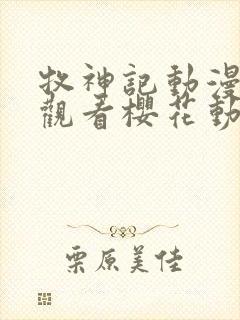 牧神記動漫
觀看櫻花動
栗原美佳